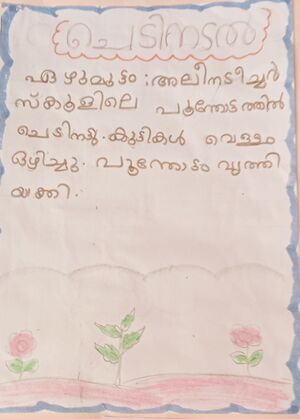 ചെടിനടൽ
ഏഴുമുട്ടം : അലീനടീച്ചർ
സ്കൂളിലെ പൂന്തോട്ടത്തിൽ
ചെടിനട്ടു. കുട്ടികൾ വെള്ളം
ഒഴിച്ചു. പൂന്തോട്ടം വൃത്തി
യാക്കി.